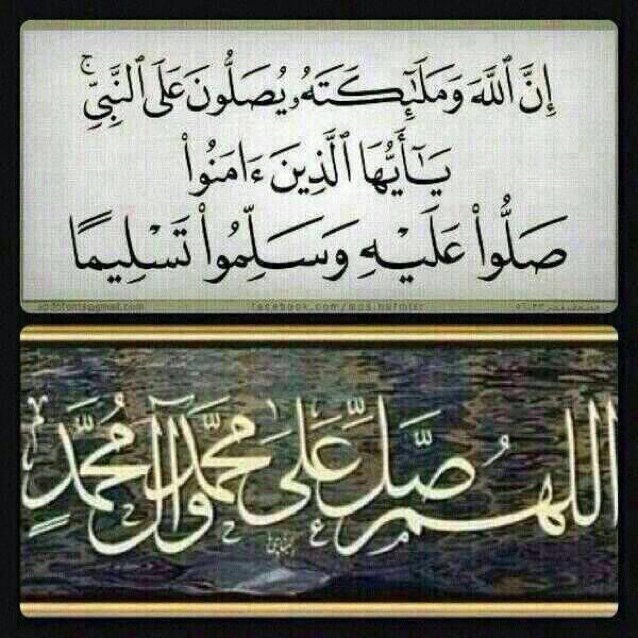 إِنَّ ٱللَّهَ وَمَلَٰٓئِكَتَهُۥ يُصَلُّونَ عَلَى ٱلنَّبِىِّ ۚ
يَٰٓأَيُّهَا ٱلَّذِينَ ءَامَنُوا۟
صَلُّوا۟ عَلَيْهِ وَسَلِّمُوا۟ تَسْلِيمًا
اللهُم صَلِّ عَلَى مُحَمَّدٍ وَآلِ مُحَمَّدٍ